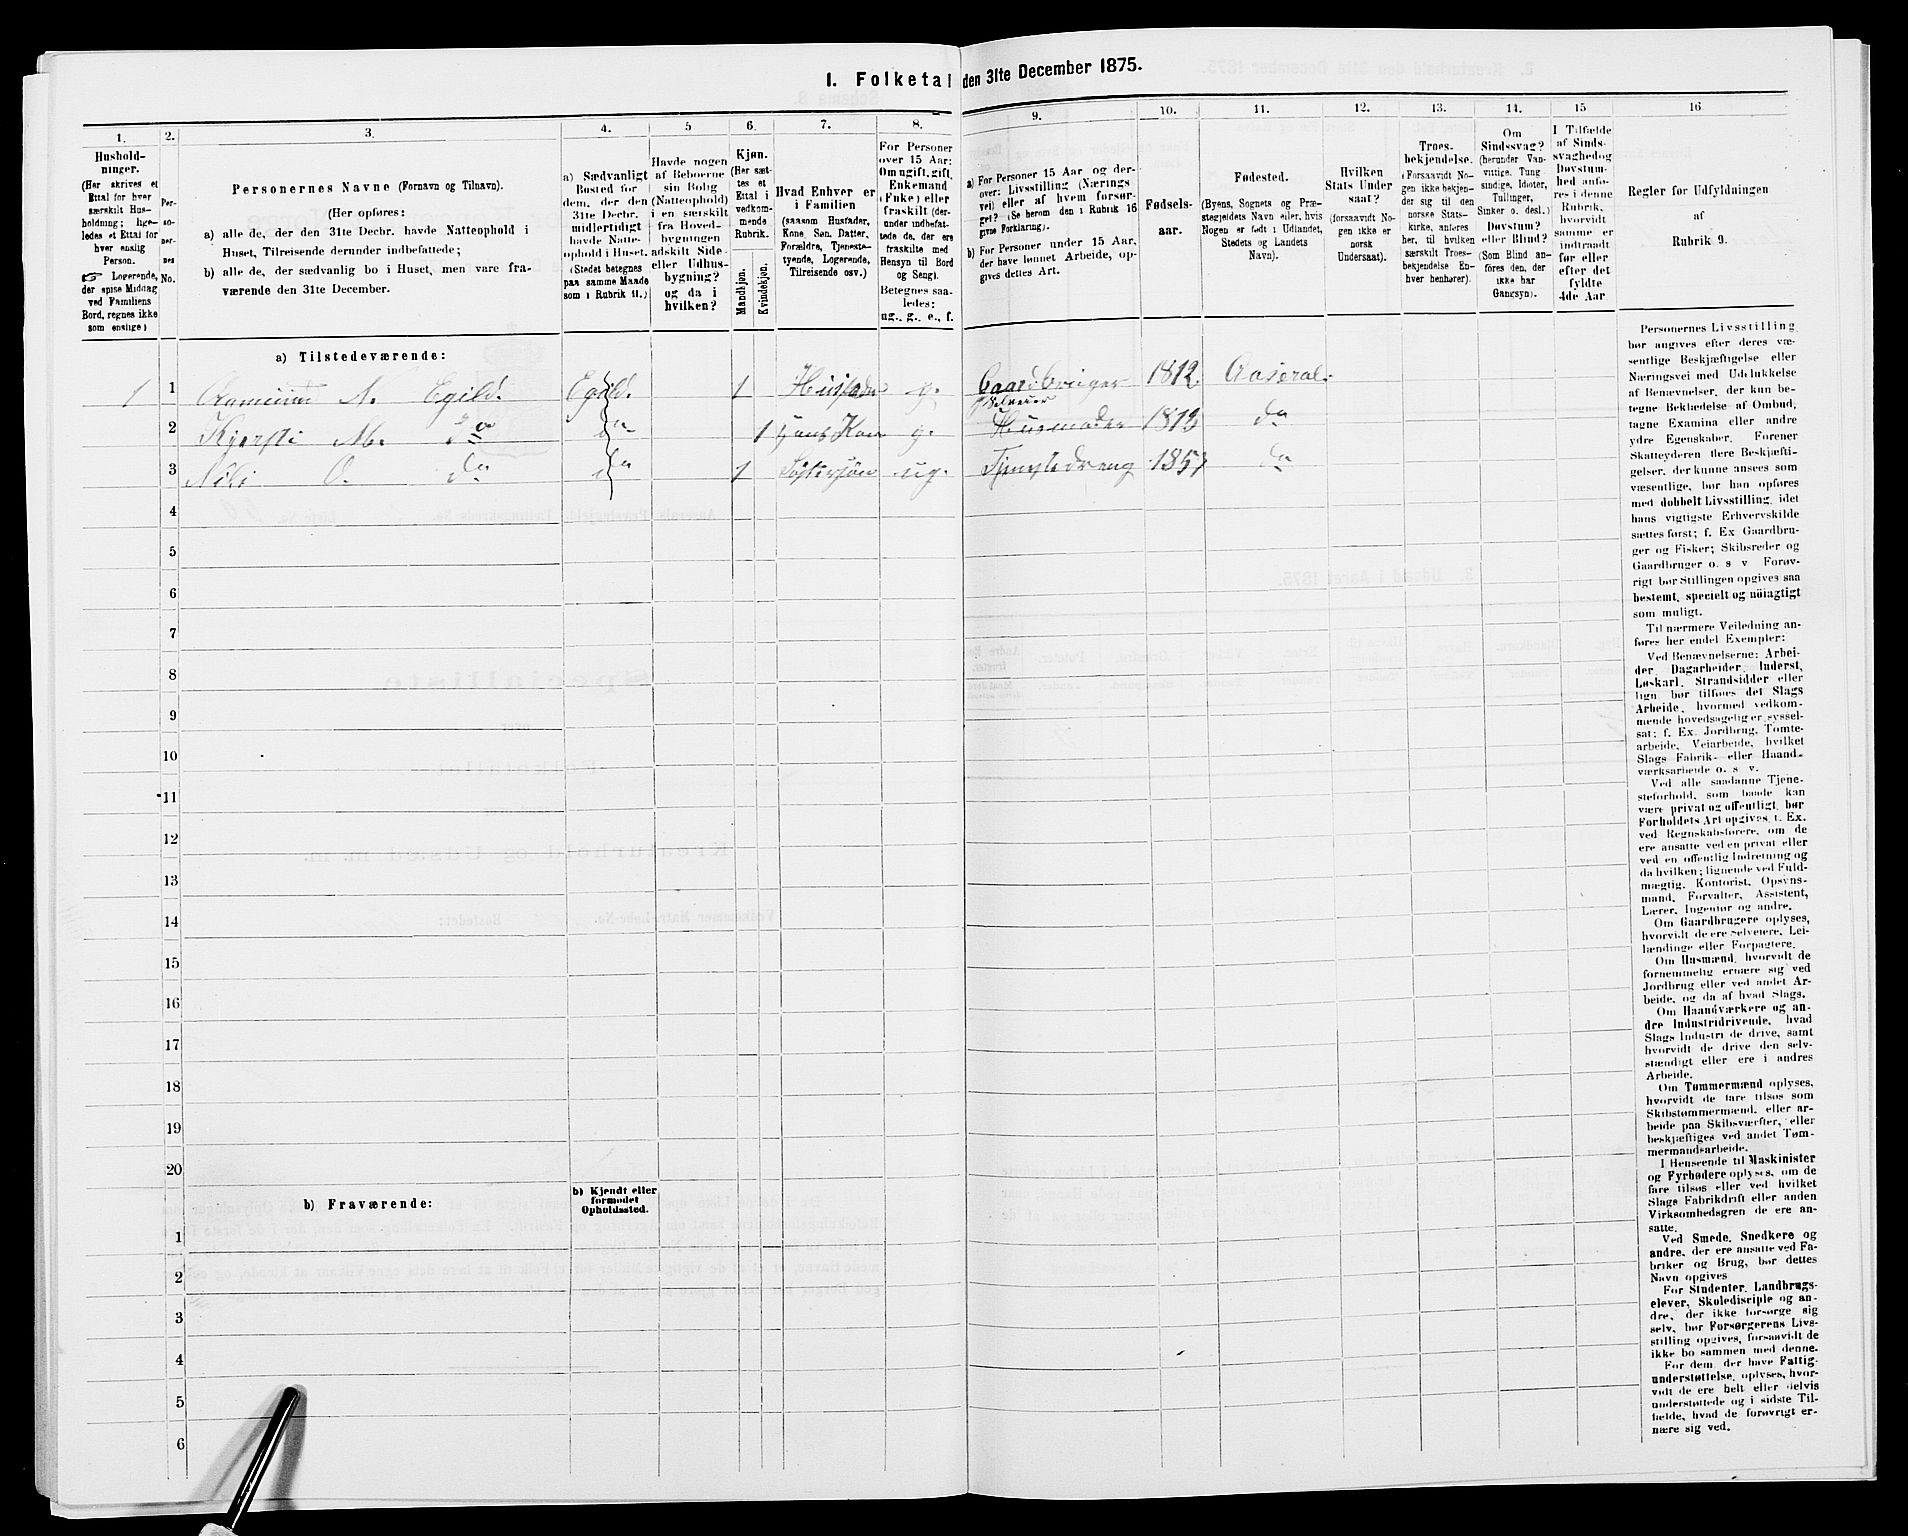 1. Folketal den 31te December 1875.
1.
2.
3.
4.
5
6.
7.
8.
9.
10.
11.
12.
13.
14.
15
16
Hushold-
ninger.
(Her skrives et
Ettal for hver
særskilt Hus-
holdning; lige-
ledes et Ettal for
hver enslig
Person.
☞ Logerende,
der spise Middag
ved Familiens
Bord, regnes ikke
som enslige)
Per-
so-
ner-
nes
No.
Personernes Navne (Fornavn og Tilnavn).
(Her opføres:
a) alle de, der den 31te Decbr. havde Natteophold i
Huset, Tilreisende derunder indbefattede;
b) alle de, der sædvanlig bo i Huset, men vare fra-
værende den 31te December.
a) Sædvanligt
Bosted for
dem, der den
31te Decbr.
midlertidigt
havde Natte-
ophold i Huset.
(Stedet betegnes
paa samme Maade
som i Rubrik 11.)
Havde nogen
af Beboerne
sin Bolig
(Natteophold)
i en særskilt
fra Hoved-
bygningen
adskilt Side-
eller Udhus-
bygning?
og da i
hvilken?
Kjøn.
(Her sæt-
tes et
Ettal i
vedkom-
mende
Rubrik.
Mandkjøn.
Kvindekjøn.
Hvad Enhver er
i Familien
(saasom Husfader,
Kone, Søn, Datter,
Forældre, Tjeneste-
tyende, Logerende,
Tilreisende osv.)
For Personer
over 15 Aar:
Om ugift, gift,
Enkemand
(Enke) eller
fraskilt (der-
under indbefat-
tede de, der ere
fraskilte med
Hensyn til Bord
og Seng).
Betegnes saa-
ledes:
ug., g., e., f.
a) For Personer 15 Aar og der-
over: Livsstilling (Nærings-
vei) eller af hvem forsør-
get? (Se herom den i Rubrik 16
givne Forklaring).
b) For Personer under 15 Aar,
der have lønnet Arbeide, op-
gives dettes Art.
Fødsels-
aar.
Fødested.
(Byens, Sognets og Præ-
stegjeldets Navn eller, hvis
Nogen er født i Udlandet,
Stedets og Landets
Navn).
Hvilken
Stats Under-
saat?
(forsaavidt No-
gen ikke er
norsk
Undersaat).
Troes-
bekjendelse.
(Forsaavidt No-
gen ikke bekjen-
der sig til den
norske Stats-
kirke, anføres
her, til hvilken
særskilt Troes-
bekjendelse En-
hver henhører).
Om
Sindssvag?
(herunder Van-
vittige, Tung-
sindige, Idioter,
Tullinger,
Sinker o. desl.)
Døvstum?
eller Blind?
(Som Blind an-
føres den, der
ikke har
Gangsyn).
I Tilfælde
af Sinds-
svaghed og
Døvstum-
hed anfø-
res i denne
Rubrik,
hvorvidt
samme er
indtraadt
før eller
efter det
fyldte
4de Aar
Regler for Udfyldningen
af
Rubrik 9.
a) Tilstedeværende:
1 1 Aamund N. Egild. Egild. 1 Husfader g. Gaardbruger 1812. Aaseral.
Selveier
2 Kjersti M. do do 1 Hans Kone g. Husmoder 1812 do
3 Nils O. do do 1 Søstersøn ug. Tjenstedreng 1857 do
4
5
6
7
8
9
10
11
12
13
14
15
16
17
18
19
20
b) Fraværende:
b) Kjendt eller
formodet
Opholdssted.
1
2
3
4
5
6
Personernes Livsstilling
bør angives efter deres væ-
sentlige Beskjæftigelse eller
Næringsvei med Udelukkelse
af Benævnelser, der kun be-
tegne Beklædelse af Ombud,
tagne Examina eller andre
ydre Egenskaber. Forener
Skatteyderen flere Beskjæfti-
gelser, der kunne ansees som
væsentlige, bør han opføres
med dobbelt Livsstilling, idet
hans vigtigste Erhvervskilde
sættes først; f. Ex Gaardbru-
ger og Fisker; Skibsreder og
Gaardbruger o. s v Forøv-
rigt bør Stillingen opgives saa
bestemt, specielt og nöiagtigt
som muligt.
Til nærmere Veiledning an-
føres her endel Exempler:
Ved Benævnelserne: Arbei-
der, Dagarbeider, Inderst,
Løskarl, Strandsidder eller
lign. bør tilføies det Slags
Arbeide, hvormed vedkom-
mende hovedsagelig er syssel-
sat; f. Ex. Jordbrug, Tomte-
arbeide, Veiarbeide, hvilket
Slags Fabrik- eller Haand-
værksarbeide o. s v.
Ved alle saadanne Tjene-
steforhold, som baade kan
være privat og offentligt, bør
Forholdets Art opgives, t. Ex.
ved Regnskabsførere, om de
ere ansatte ved en privat eller
ved en offentlig Indretning og
da hvilken; lignende ved Fuld-
mægtig, Kontorist, Opsyns-
mand, Forvalter, Assistent,
Lærer, Ingeniør og andre.
Om Gaardbrugere oplyses,
hvorvidt de ere Selveiere, Lei-
lændinge eller Forpagtere.
Om Husmænd, hvorvidt de
fornemmelig ernære sig ved
Jordbrug eller ved andet Ar-
beide, og da af hvad Slags.
Om Haandværkere og an-
dre Industridrivende, hvad
Slags Industri de drive, samt
hvorvidt de drive den selv-
stændigt eller ere i andres
Arbeide.
Om Tømmermænd oplyses,
hvorvidt de fare tilsøs som
Skibstømmermænd, eller ar-
beide paa Skibsværfter, eller
beskjæftiges ved andet Tøm-
mermandsarbeide.
I Henseende til Maskinister
og Fyrbødere oplyses, om de
fare tilsøs eller ved hvilket
Slags Fabrikdrift eller anden
Virksomhedsgren de ere an-
satte.
Ved Smede, Snedkere og
andre, der ere ansatte ved Fa-
briker og Brug, bør dettes
Navn opgives
For Studenter, Landbrugs-
elever, Skoledisciple og an-
dre, der ikke forsørge sig
selv, bør Forsørgerens Livs-
stilling opgives, forsaavidt de
ikke bo sammen med denne.
For dem, der have Fattig-
understøttelse, oplyses, hvor-
vidt de ere helt eller delvis
understøttede og i sidste Til-
fælde, hvad de forøvrigt er-
nære sig ved.